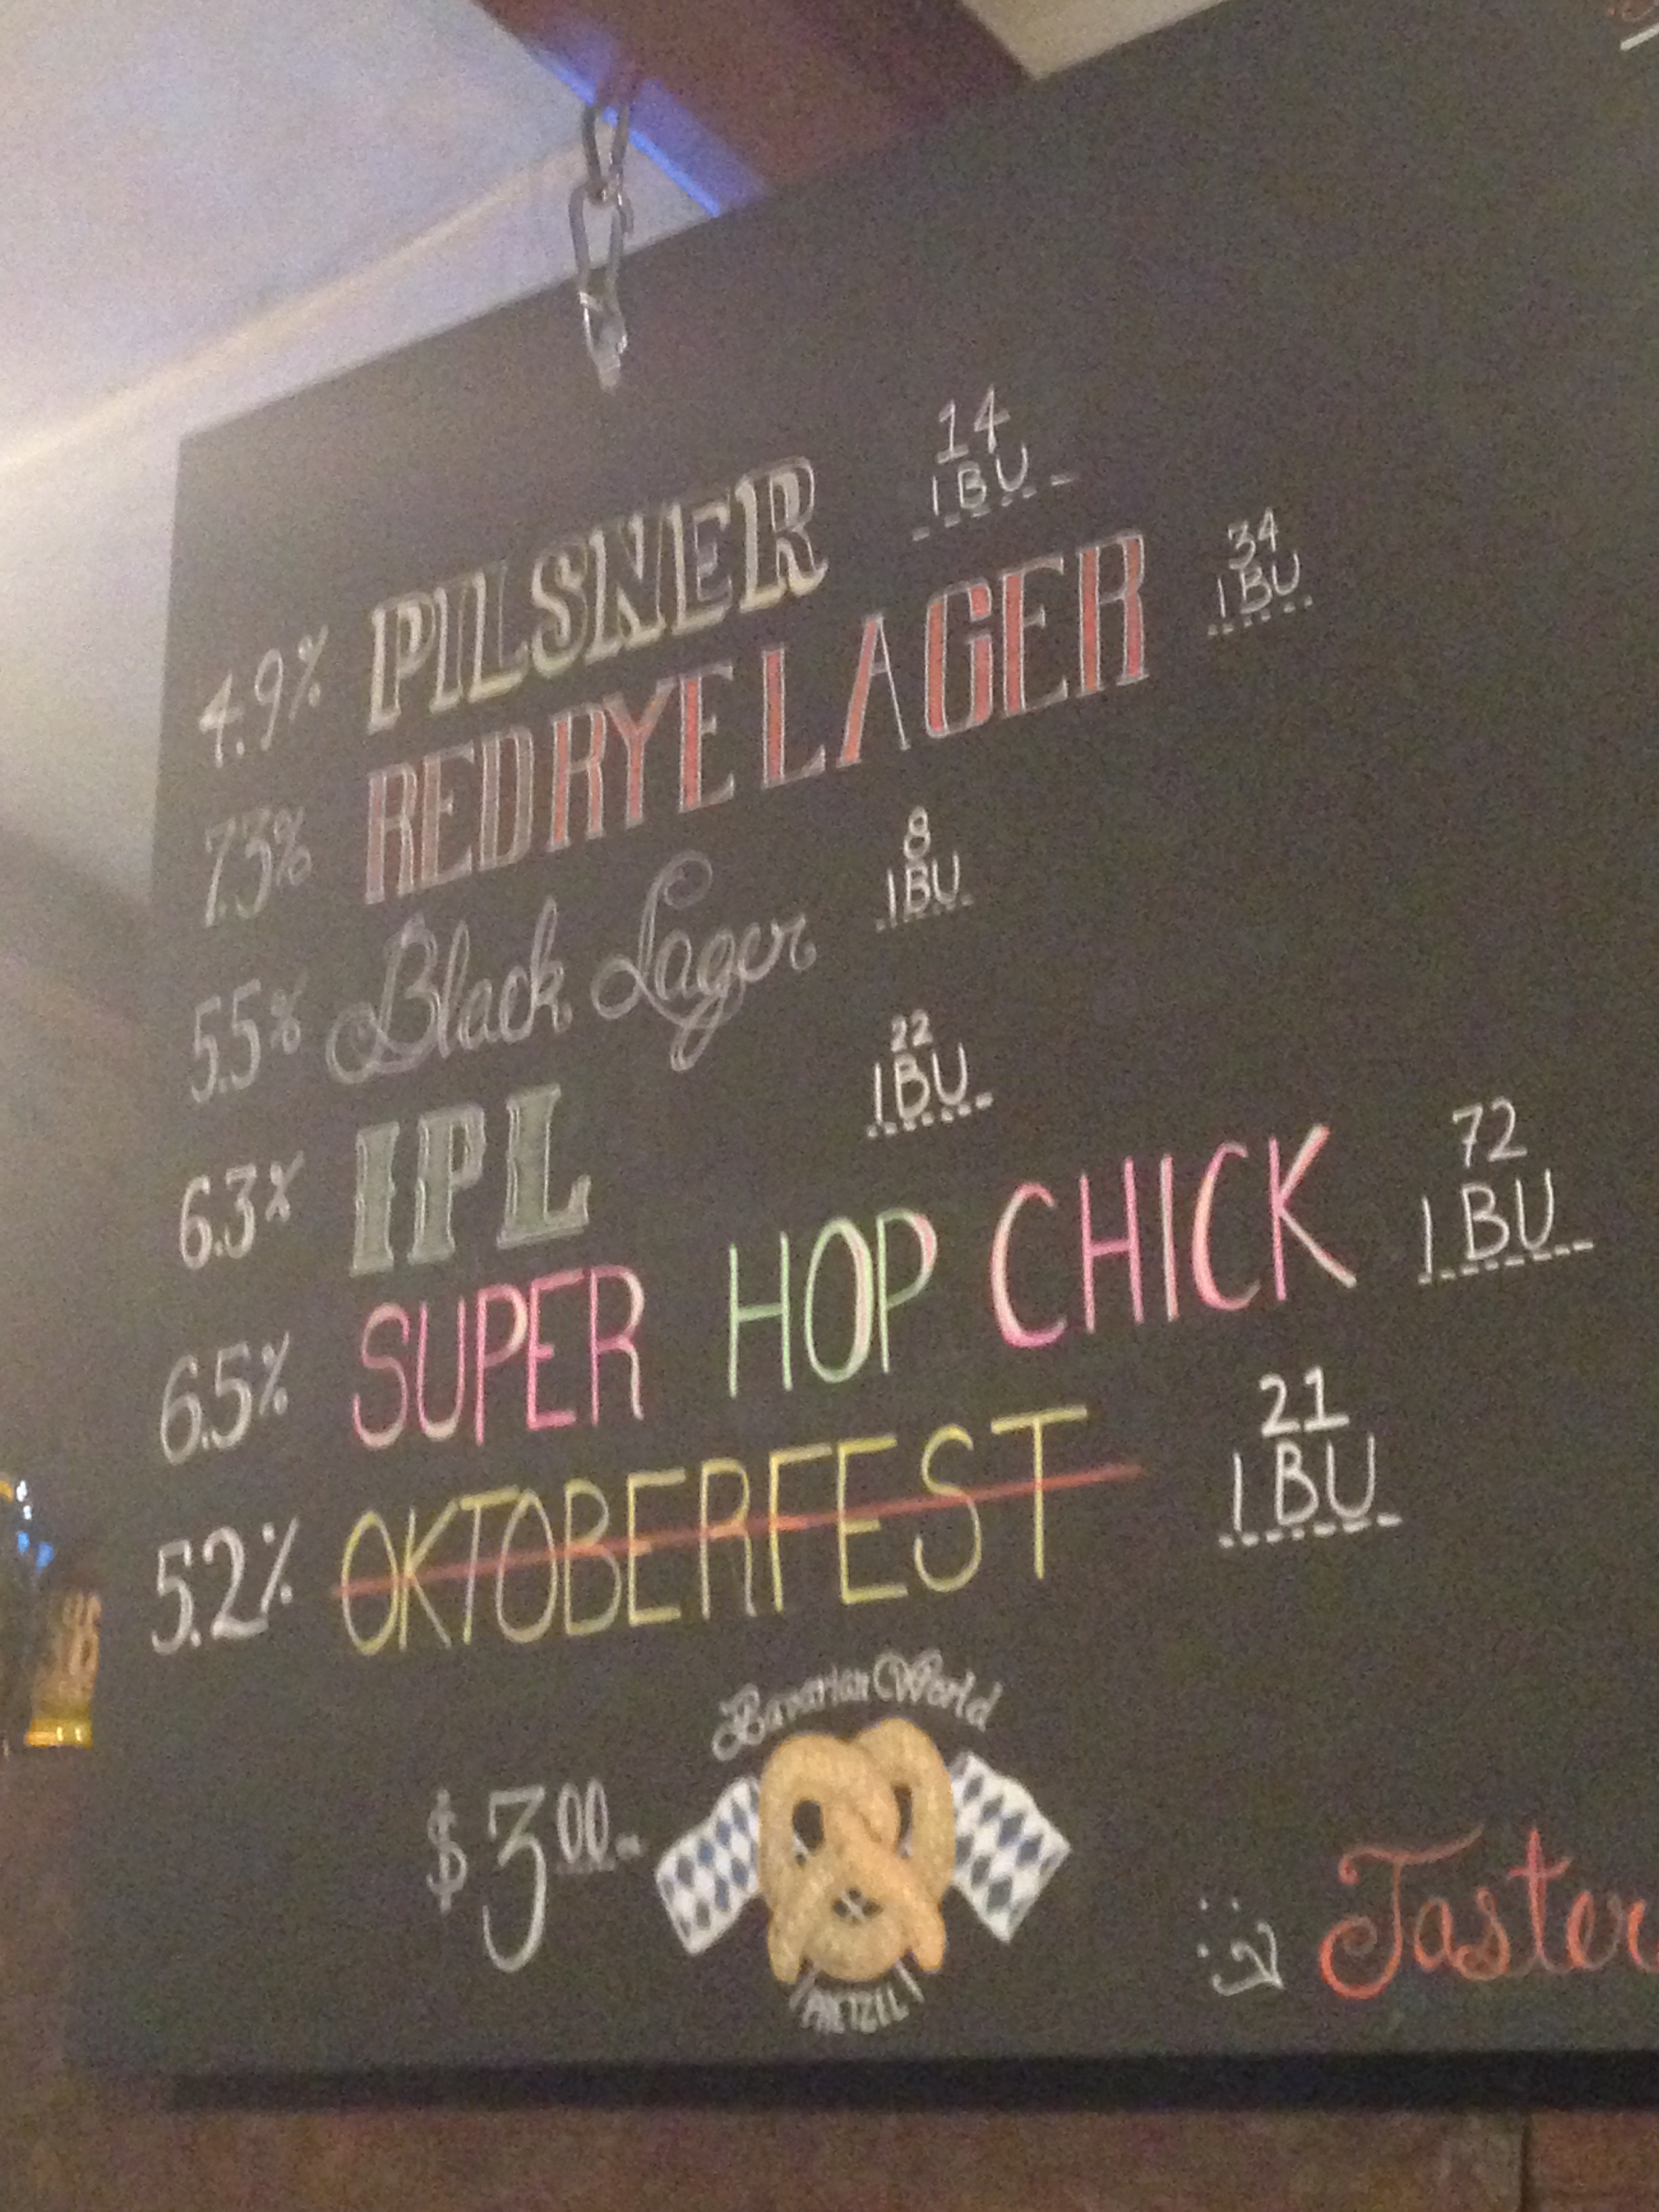 4.9% PILSNER 14 IBU
7.3% RED RYE LAGER 34 IBU
5.5% Black Lager 8 IBU
6.3% IPL 22 IBU
6.5% SUPER HOP CHICK 72 IBU
5.2% OKTOBERFEST 21 IBU
Bavarian World
$3.00
PRETZEL
Taster